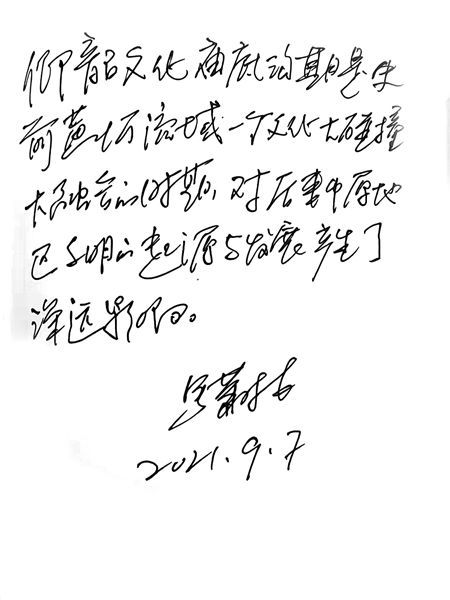 仰韶文化庙底沟期是史
前黄河流域一个文化大碰撞
大融合的时期，对后来中原地
区文明的起源与发展产生了
深远影响。
2021.9.7